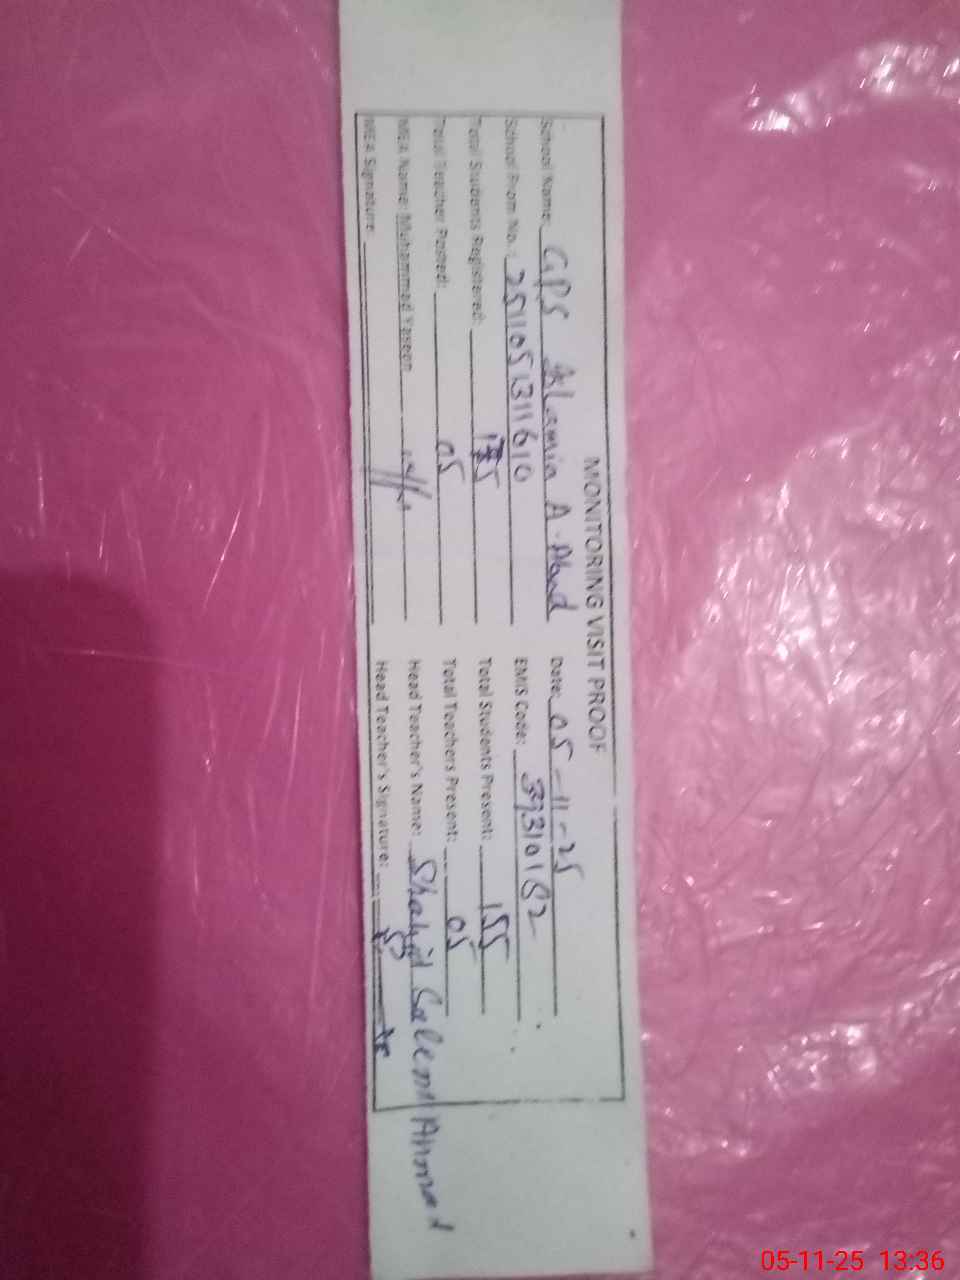 MONITORING VISIT PROOF
School Name: GPS Islamia A. Abad Date: 05-11-25
School Prom No.: 2511051311610 EMIS Code: 39310182
Total Students Registered: Total Students Present: 155
Total Teacher Posted: 05 Total Teachers Present: 05
MEA Name: Muhammad Yaseen Head Teacher's Name: Shahid Saleem Ahmad
MEA Signature: Head Teacher's Signature:
05-11-25 13:36